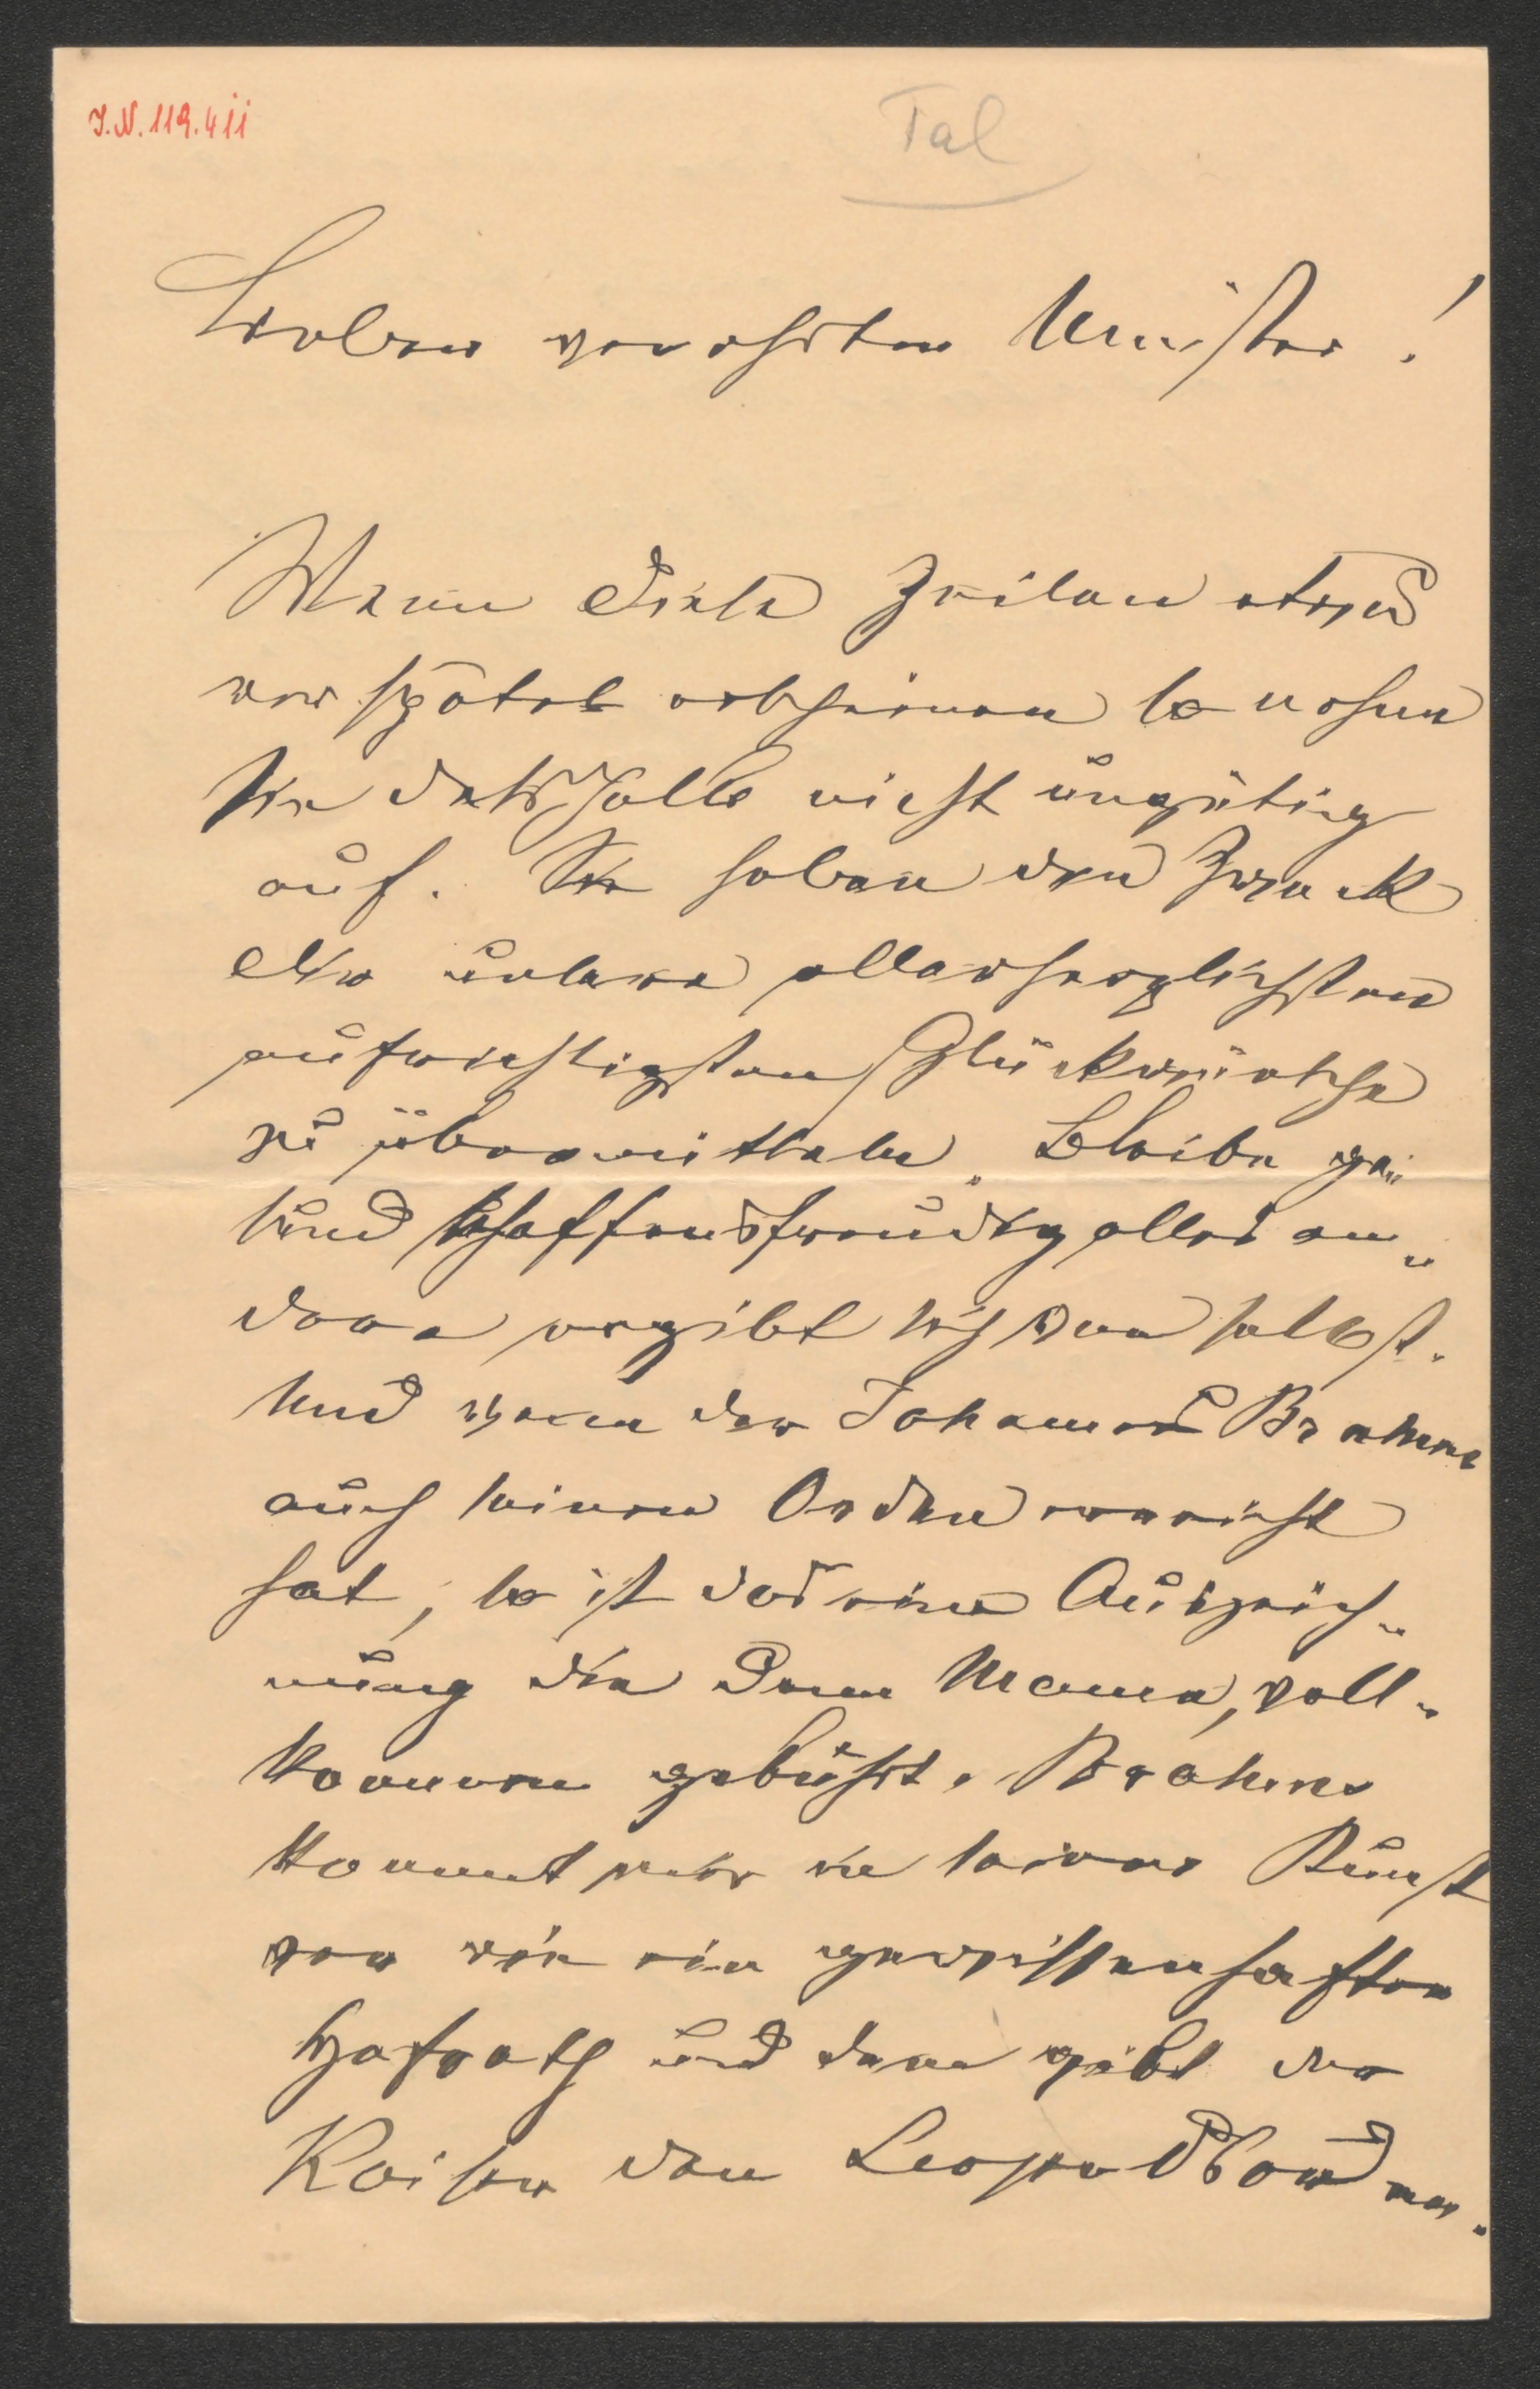 I.N. 119.411
Tal
Lieber verehrter Meister!
Wenn diese Zeilen etwas
verspätet erscheinen so nehmen
Sie deßhalb nicht ungütig
auf. Sie haben den Zweck
Dir unsere allerherzlichsten
aufrichtigsten Glückwünsche
zu übermitteln. Bleibe ge„
sund schaffensfreudig alles an„
dere ergibt sich von selbst.
Und wenn der Johannes Brahms
auch seinen Orden erreicht
hat, so ist das eine Auszeich„
nung die dem Manne, voll„
kommen gebührt. Brahms
kommt mir in seiner Kunst
vor wie ein gewissenhafter
Hofrath und dem gibt der
Kaiser den Leopoldorden.